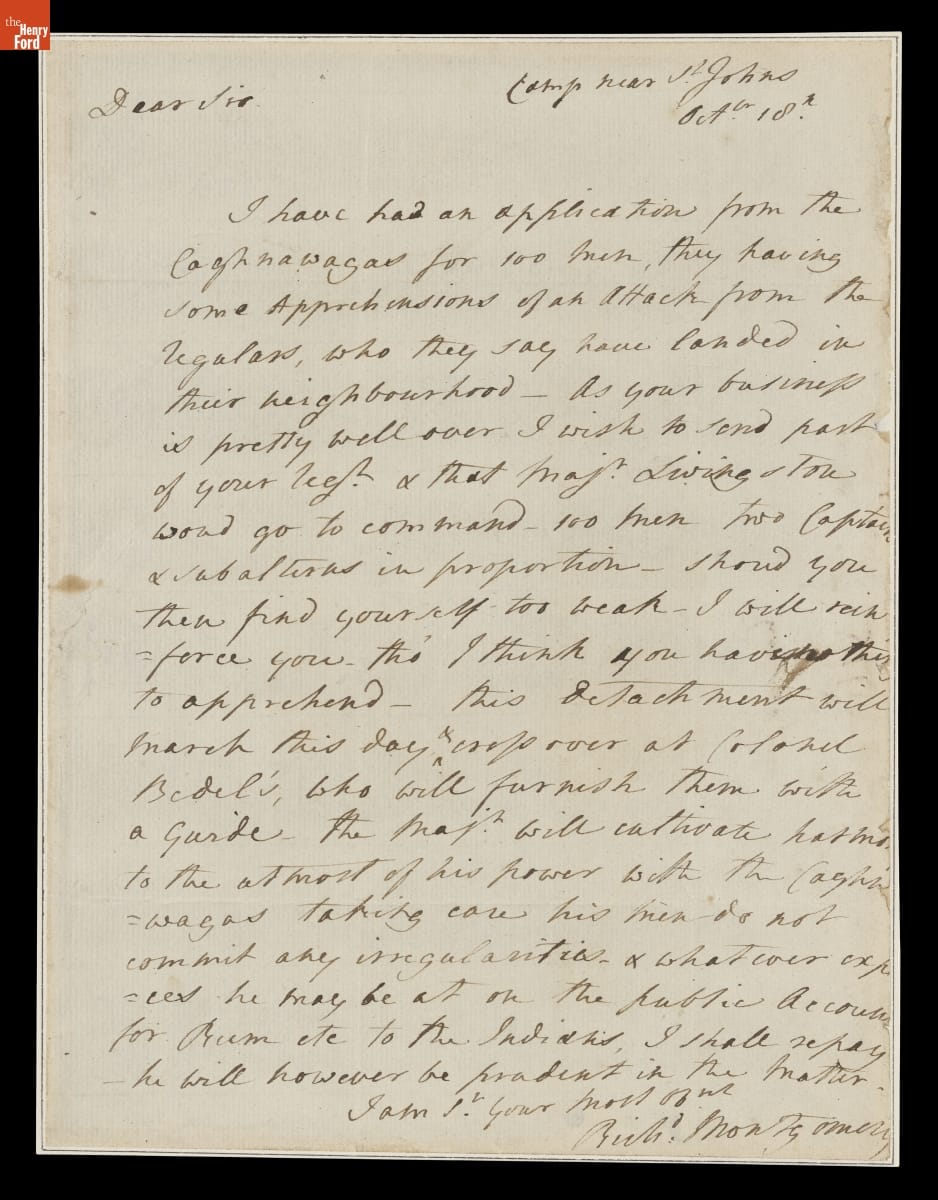 the
Henry
Ford
Camp near St. Johns
Dear Sir.
Octbr. 18th.
I have had an application from the
Caghnawagas for 100 men, they having
some Apprehensions of an Attack from the
regulars, who they say have landed in
their neighbourhood — As your business
is pretty well over I wish to send part
of your regt. & that Majr. Livingston
woud go to command — 100 men two Captain
& subalterns in proportion — Shoud you
then find yourself too weak — I will rein
=force you — tho' I think you have
to apprehend — this detachment will
march this day & cross over at Colonel
Bedel's, who will furnish them with
a Guide — The Majr. will cultivate harmo
to the utmost of his power with the Caghn
=wagas taking care his men do not
commit any irregularities — & whatever exp
=ces he may be at on the public Accoun
for Rum etc to the Indians, I shall repay
— he will however be prudent in the Matter.
I am Sr. your most obnt
Richd. Montgomery